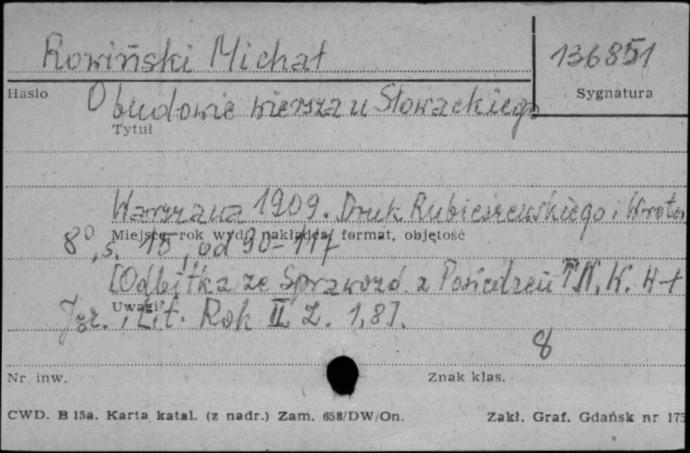 Rowiński Michał
136851
Hasło
Sygnatura
O budowie wiersza u Słowackiego
Tytuł
Warszawa 1909. Druk Rubieszewskiego i Wrotn
Miejsce, rok wyd., nakładca, format, objętość
8°, s. 15, od 90-117
[Odbitka ze Sprawozd. z Posiedzeń T.N.W. W-ł
Uwagi
Jęz. i Lit. Rok II. Z. 1,8].
8
Nr. inw.
Znak klas.
CWD. B 15a. Karta katal. (z nadr.) Zam. 658/DW/On.
Zakł. Graf. Gdańsk nr 175